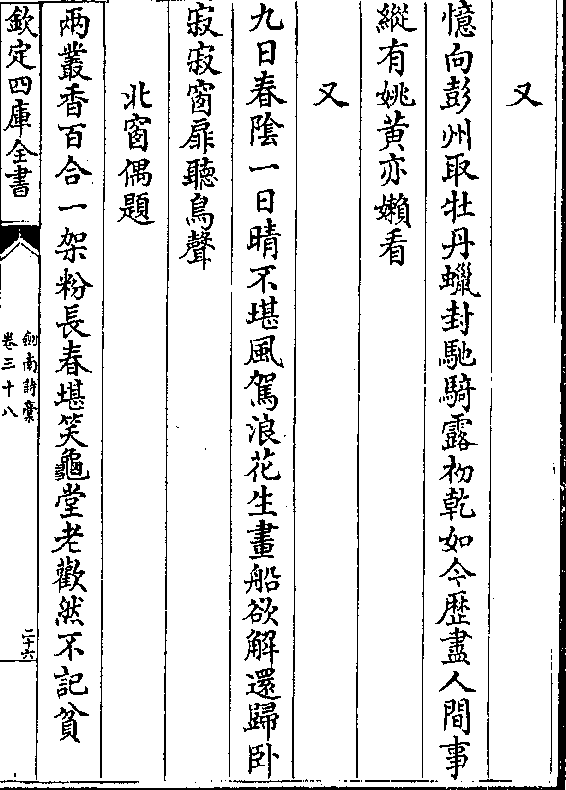 又
憶向彭州取牡丹蠟封馳騎露初乾如今歴盡人間事
縱有姚黄亦嬾看
又
九日春陰一日晴不堪風駕浪花生畫船欲解還歸卧
寂寂窗扉聽鳥聲
北窗偶題
兩叢香百合一架粉長春堪笑龜堂老歡然不記貧
欽定四庫全書
劍南詩藁
卷三十八
二十六